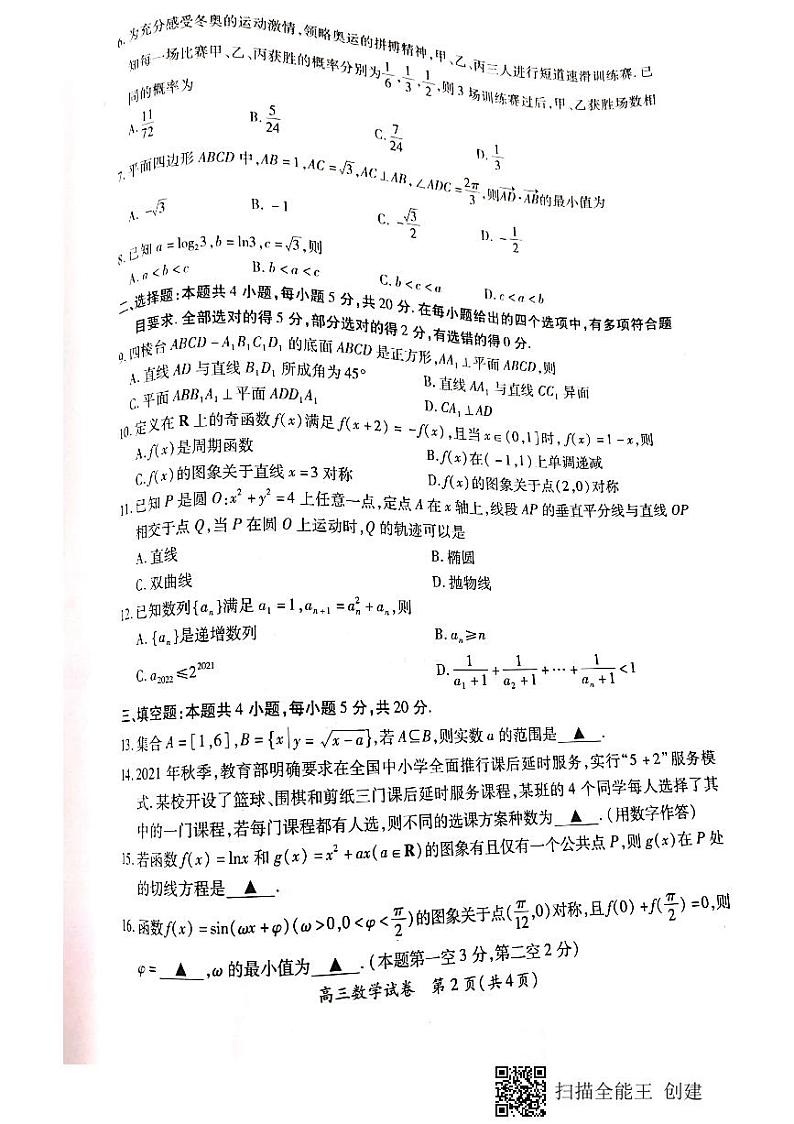 6. 为充分感受冬奥的运动激情,领略奥运的拼搏精神,甲、乙、丙三人进行短道速滑训练赛. 已
知每一场比赛甲、乙、丙获胜的概率分别为1/6,1/3,1/2,则3场训练赛过后,甲、乙获胜场数相
同的概率为
A. 11/72 B. 5/24 C. 7/24 D. 1/3
7. 平面四边形ABCD中,AB=1,AC=√3,AC⊥AB,∠ADC=2π/3,则AD→·AB→的最小值为
A. -√3 B. -1 C. -√3/2 D. -1/2
8. 已知a=log₂3,b=ln3,c=√3,则
A. a<b<c B. b<a<c C. b<c<a D. c<a<b
二、选择题:本题共4小题,每小题5分,共20分.在每小题给出的四个选项中,有多项符合题
目要求.全部选对的得5分,部分选对的得2分,有选错的得0分.
9. 四棱台ABCD-A₁B₁C₁D₁的底面ABCD是正方形,AA₁⊥平面ABCD,则
A. 直线AD与直线B₁D₁所成角为45° B. 直线AA₁与直线CC₁异面
C. 平面ABB₁A₁⊥平面ADD₁A₁ D. CA₁⊥AD
10. 定义在R上的奇函数f(x)满足f(x+2)=-f(x),且当x∈(0,1]时,f(x)=1-x,则
A. f(x)是周期函数 B. f(x)在(-1,1)上单调递减
C. f(x)的图象关于直线x=3对称 D. f(x)的图象关于点(2,0)对称
11. 已知P是圆O:x²+y²=4上任意一点,定点A在x轴上,线段AP的垂直平分线与直线OP
相交于点Q,当P在圆O上运动时,Q的轨迹可以是
A. 直线 B. 椭圆
C. 双曲线 D. 抛物线
12. 已知数列{aₙ}满足a₁=1,aₙ₊₁=aₙ²+aₙ,则
A. {aₙ}是递增数列 B. aₙ≥n
C. a₂₀₂₂≤2^2021 D. 1/(a₁+1)+1/(a₂+1)+…+1/(aₙ+1)<1
三、填空题:本题共4小题,每小题5分,共20分.
13. 集合A=[1,6],B={x|y=√(x-a)},若A⊆B,则实数a的范围是 ▲ .
14. 2021年秋季,教育部明确要求在全国中小学全面推行课后延时服务,实行“5+2”服务模
式.某校开设了篮球、围棋和剪纸三门课后延时服务课程,某班的4个同学每人选择了其
中的一门课程,若每门课程都有人选,则不同的选课方案种数为 ▲ .(用数字作答)
15. 若函数f(x)=lnx和g(x)=x²+ax(a∈R)的图象有且仅有一个公共点P,则g(x)在P处
的切线方程是 ▲ .
16. 函数f(x)=sin(ωx+φ)(ω>0,0<φ<π/2)的图象关于点(π/12,0)对称,且f(0)+f(π/2)=0,则
φ= ▲ ,ω的最小值为 ▲ .(本题第一空3分,第二空2分)
高三数学试卷 第2页(共4页)
扫描全能王 创建